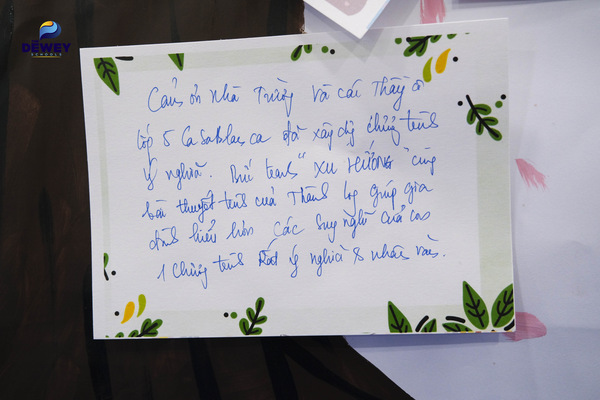 DEWEY
SCHOOLS
Cảm ơn nhà Trường và các Thầy cô
lớp 5 Casablanca đã xây dựng chương trình
ý nghĩa. Bức tranh "XU HƯỚNG" cùng
bài thuyết trình của Thành Long giúp gia
đình hiểu hơn các suy nghĩ của con
1 chương trình rất ý nghĩa & nhân văn.